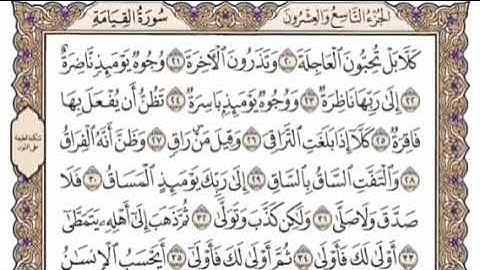 الجُزْءُ التَّاسِعُ وَالعِشْرُونَ
سُورَةُ القِيَامَةِ
كَلَّا بَلْ تُحِبُّونَ ٱلْعَاجِلَةَ ٢٠ وَتَذَرُونَ ٱلْآخِرَةَ ٢١ وُجُوهٌ يَوْمَئِذٍ نَّاضِرَةٌ
٢٢ إِلَىٰ رَبِّهَا نَاظِرَةٌ ٢٣ وَوُجُوهٌ يَوْمَئِذٍۭ بَاسِرَةٌ ٢٤ تَظُنُّ أَن يُفْعَلَ بِهَا
فَاقِرَةٌ ٢٥ كَلَّآ إِذَا بَلَغَتِ ٱلتَّرَاقِيَ ٢٦ وَقِيلَ مَنْ رَاقٍ ٢٧ وَظَنَّ أَنَّهُ ٱلْفِرَاقُ
٢٨ وَٱلْتَفَّتِ ٱلسَّاقُ بِٱلسَّاقِ ٢٩ إِلَىٰ رَبِّكَ يَوْمَئِذٍ ٱلْمَسَاقُ ٣٠ فَلَا
صَدَّقَ وَلَا صَلَّىٰ ٣١ وَلَٰكِن كَذَّبَ وَتَوَلَّىٰ ٣٢ ثُمَّ ذَهَبَ إِلَىٰٓ أَهْلِهِۦ يَتَمَطَّىٰٓ
٣٣ أَوْلَىٰ لَكَ فَأَوْلَىٰ ٣٤ ثُمَّ أَوْلَىٰ لَكَ فَأَوْلَىٰٓ ٣٥ أَيَحْسَبُ ٱلْإِنسَٰنُ
سكتة لطيفة
على النون